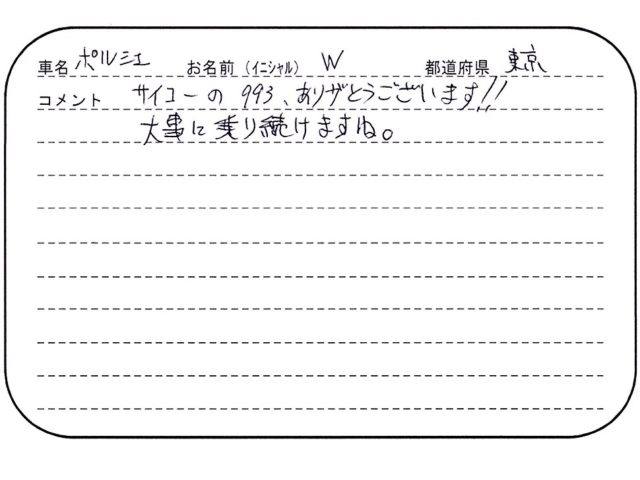 車名 ポルシェ お名前（ｲﾆｼｬﾙ） W 都道府県 東京
コメント サイコーの 993、ありがとうございます!!
大事に乗り続けますね。